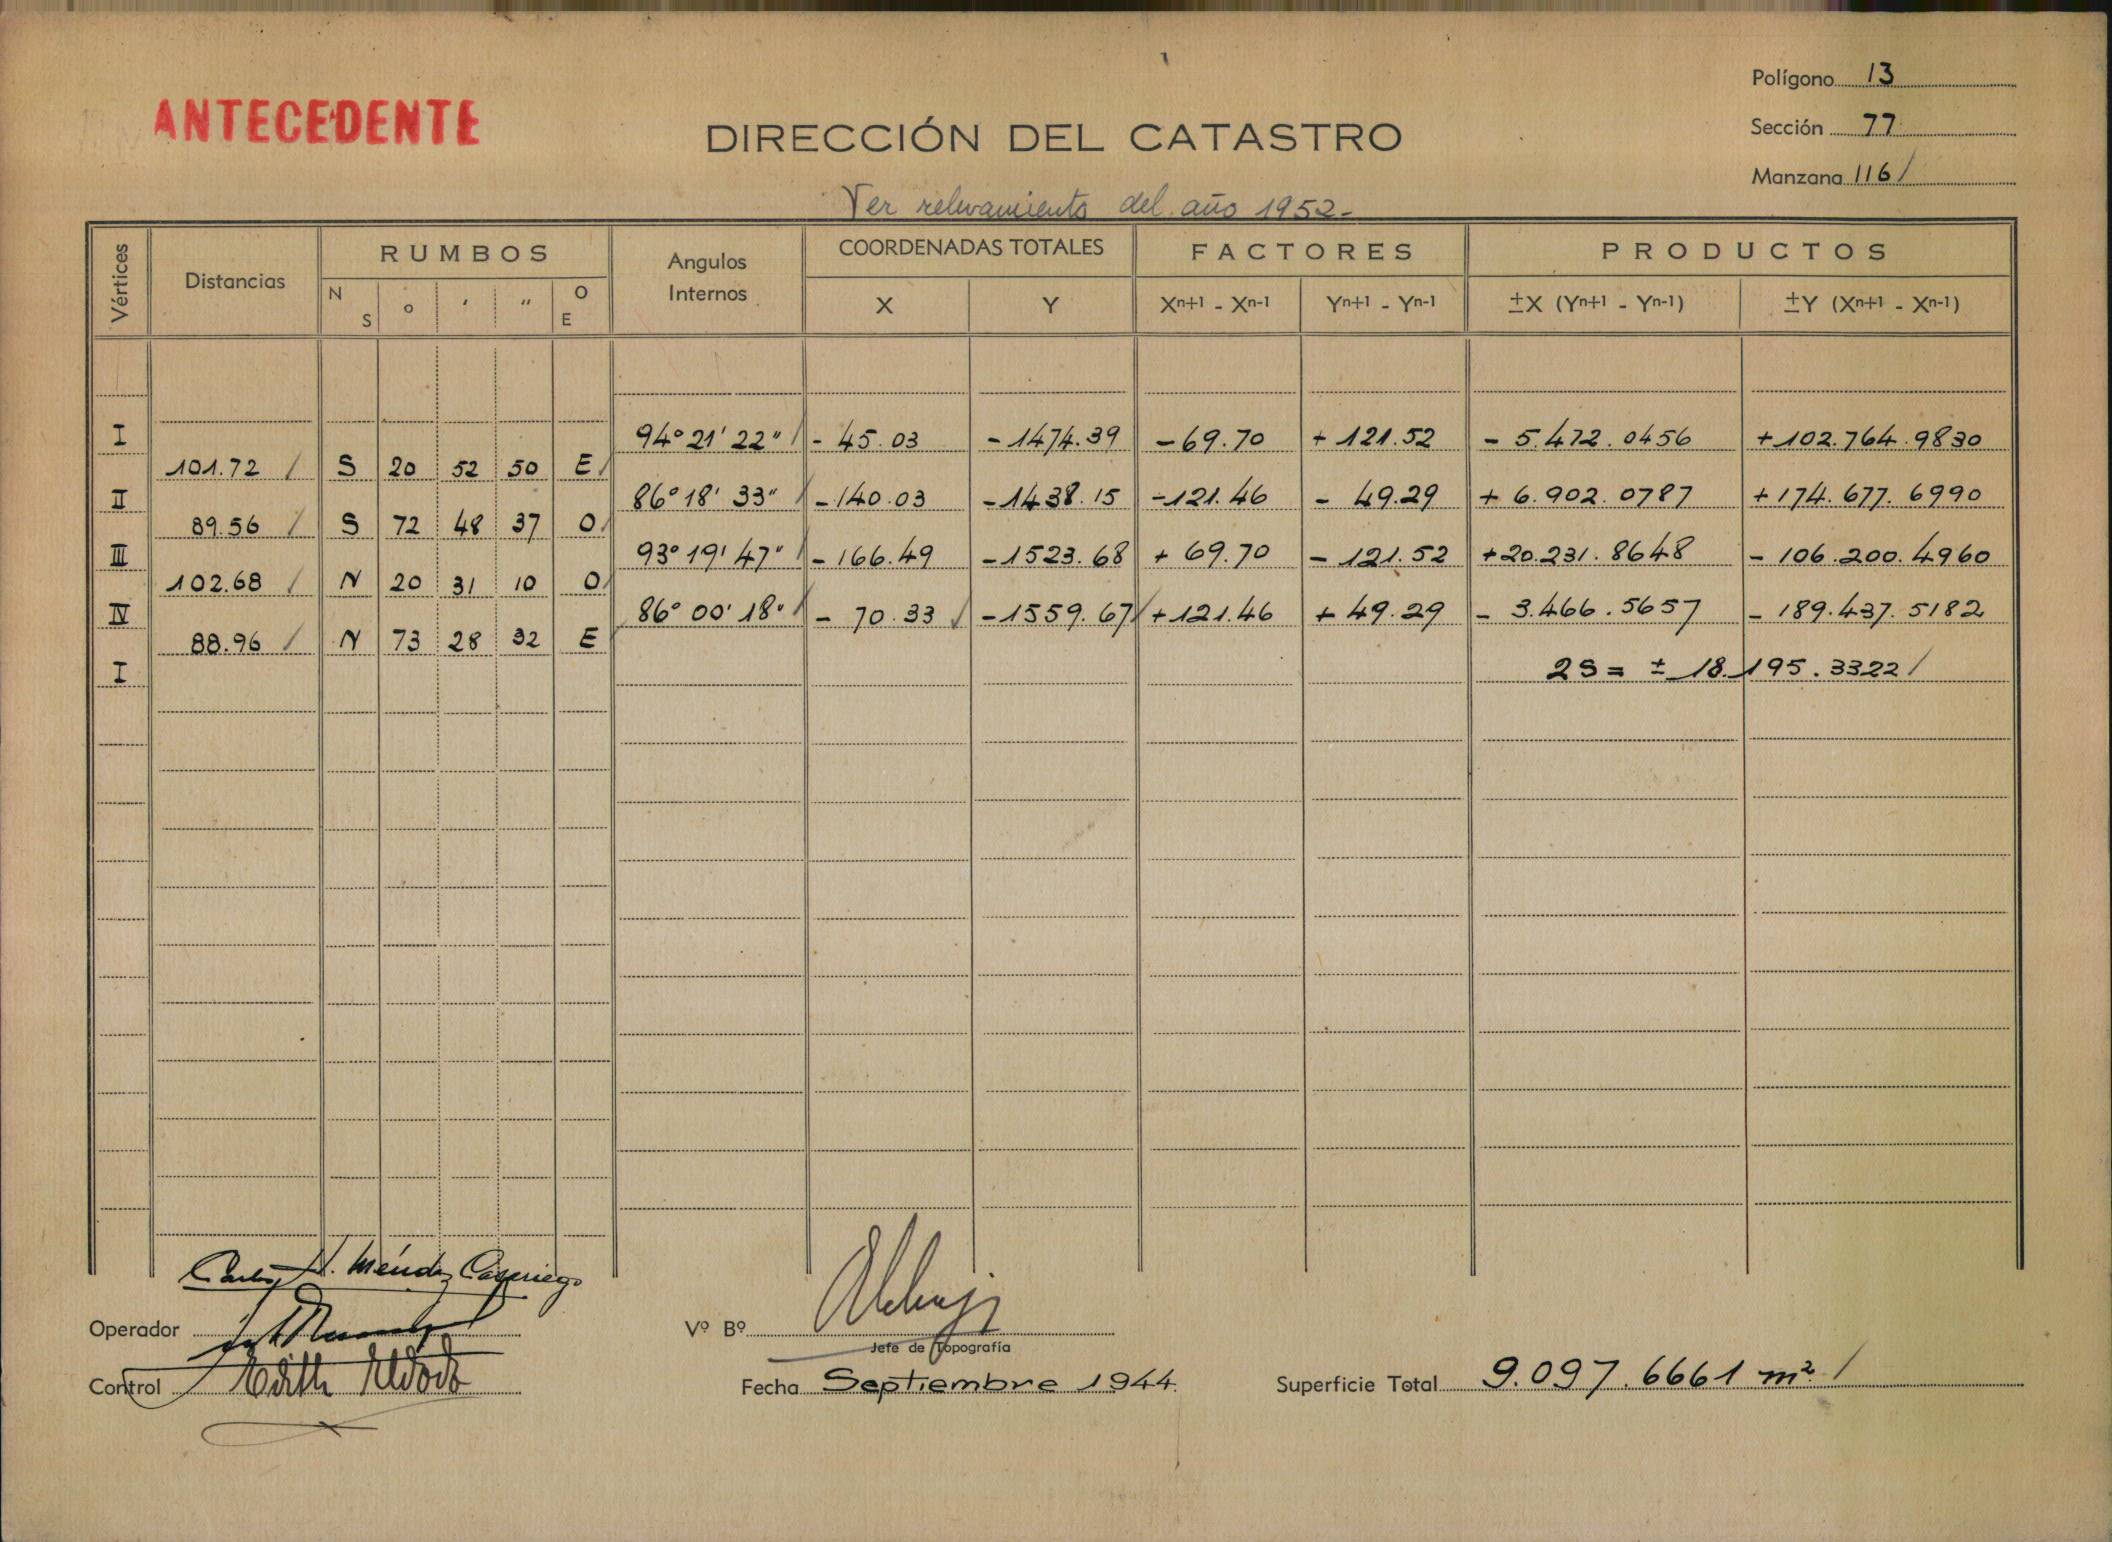 Polígono 13
ANTECEDENTE
Sección 77
DIRECCIÓN DEL CATASTRO
Manzana 116 /
Ver relevamiento del año 1952.-
Vértices Distancias RUMBOS Angulos Internos COORDENADAS TOTALES FACTORES PRODUCTOS
N S o ′ ″ O E X Y Xn+1 - Xn-1 Yn+1 - Yn-1 ±X (Yn+1 - Yn-1) ±Y (Xn+1 - Xn-1)
I 94° 21' 22" / - 45.03 - 1474.39 - 69.70 + 121.52 - 5.472.0456 + 102.764.9830
101.72 / S 20 52 50 E /
II 86° 18' 33" / - 140.03 - 1438.15 - 121.46 - 49.29 + 6.902.0787 + 174.677.6990
89.56 / S 72 48 37 O /
III 93° 19' 47" / - 166.49 - 1523.68 + 69.70 - 121.52 + 20.231.8648 - 106.200.4960
102.68 / N 20 31 10 O /
IV 86° 00' 18" / - 70.33 / - 1559.67 / + 121.46 + 49.29 - 3.466.5657 - 189.437.5182
88.96 / N 73 28 32 E /
I 2S = ± 18.195.3322 /
Carlos H. Méndez Casariego
Operador
Vº Bº
Jefe de Topografía
Control Edith
Fecha Septiembre 1944.
Superficie Total 9.097.6661 m² /